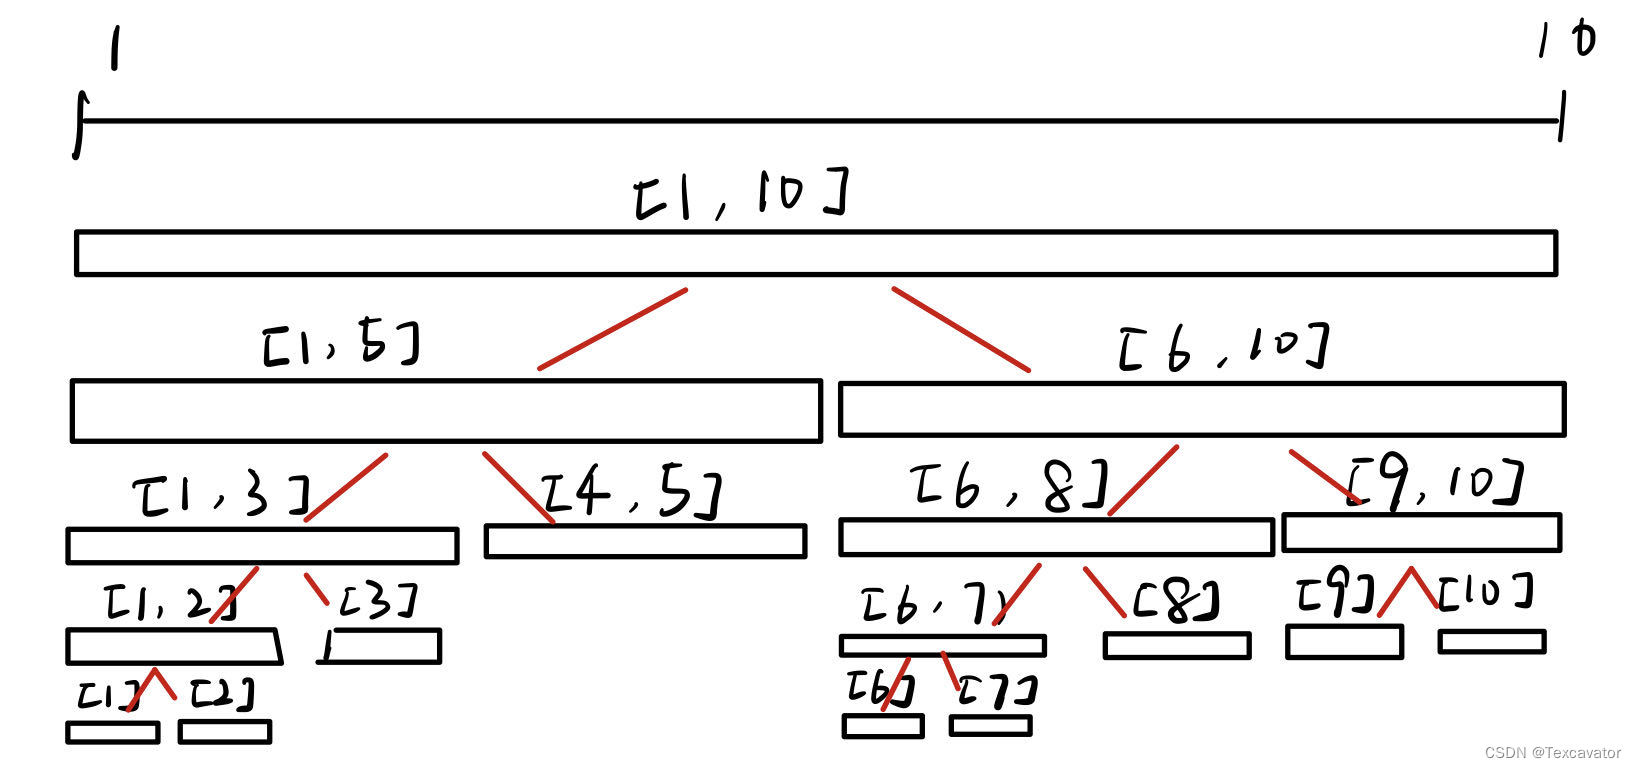 1 10
[1, 10]
[1, 5] [6, 10]
[1, 3] [4, 5] [6, 8] [9, 10]
[1, 2] [3] [6, 7) [8] [9] [10]
[1] [2] [6] [7]
CSDN @Texcavator